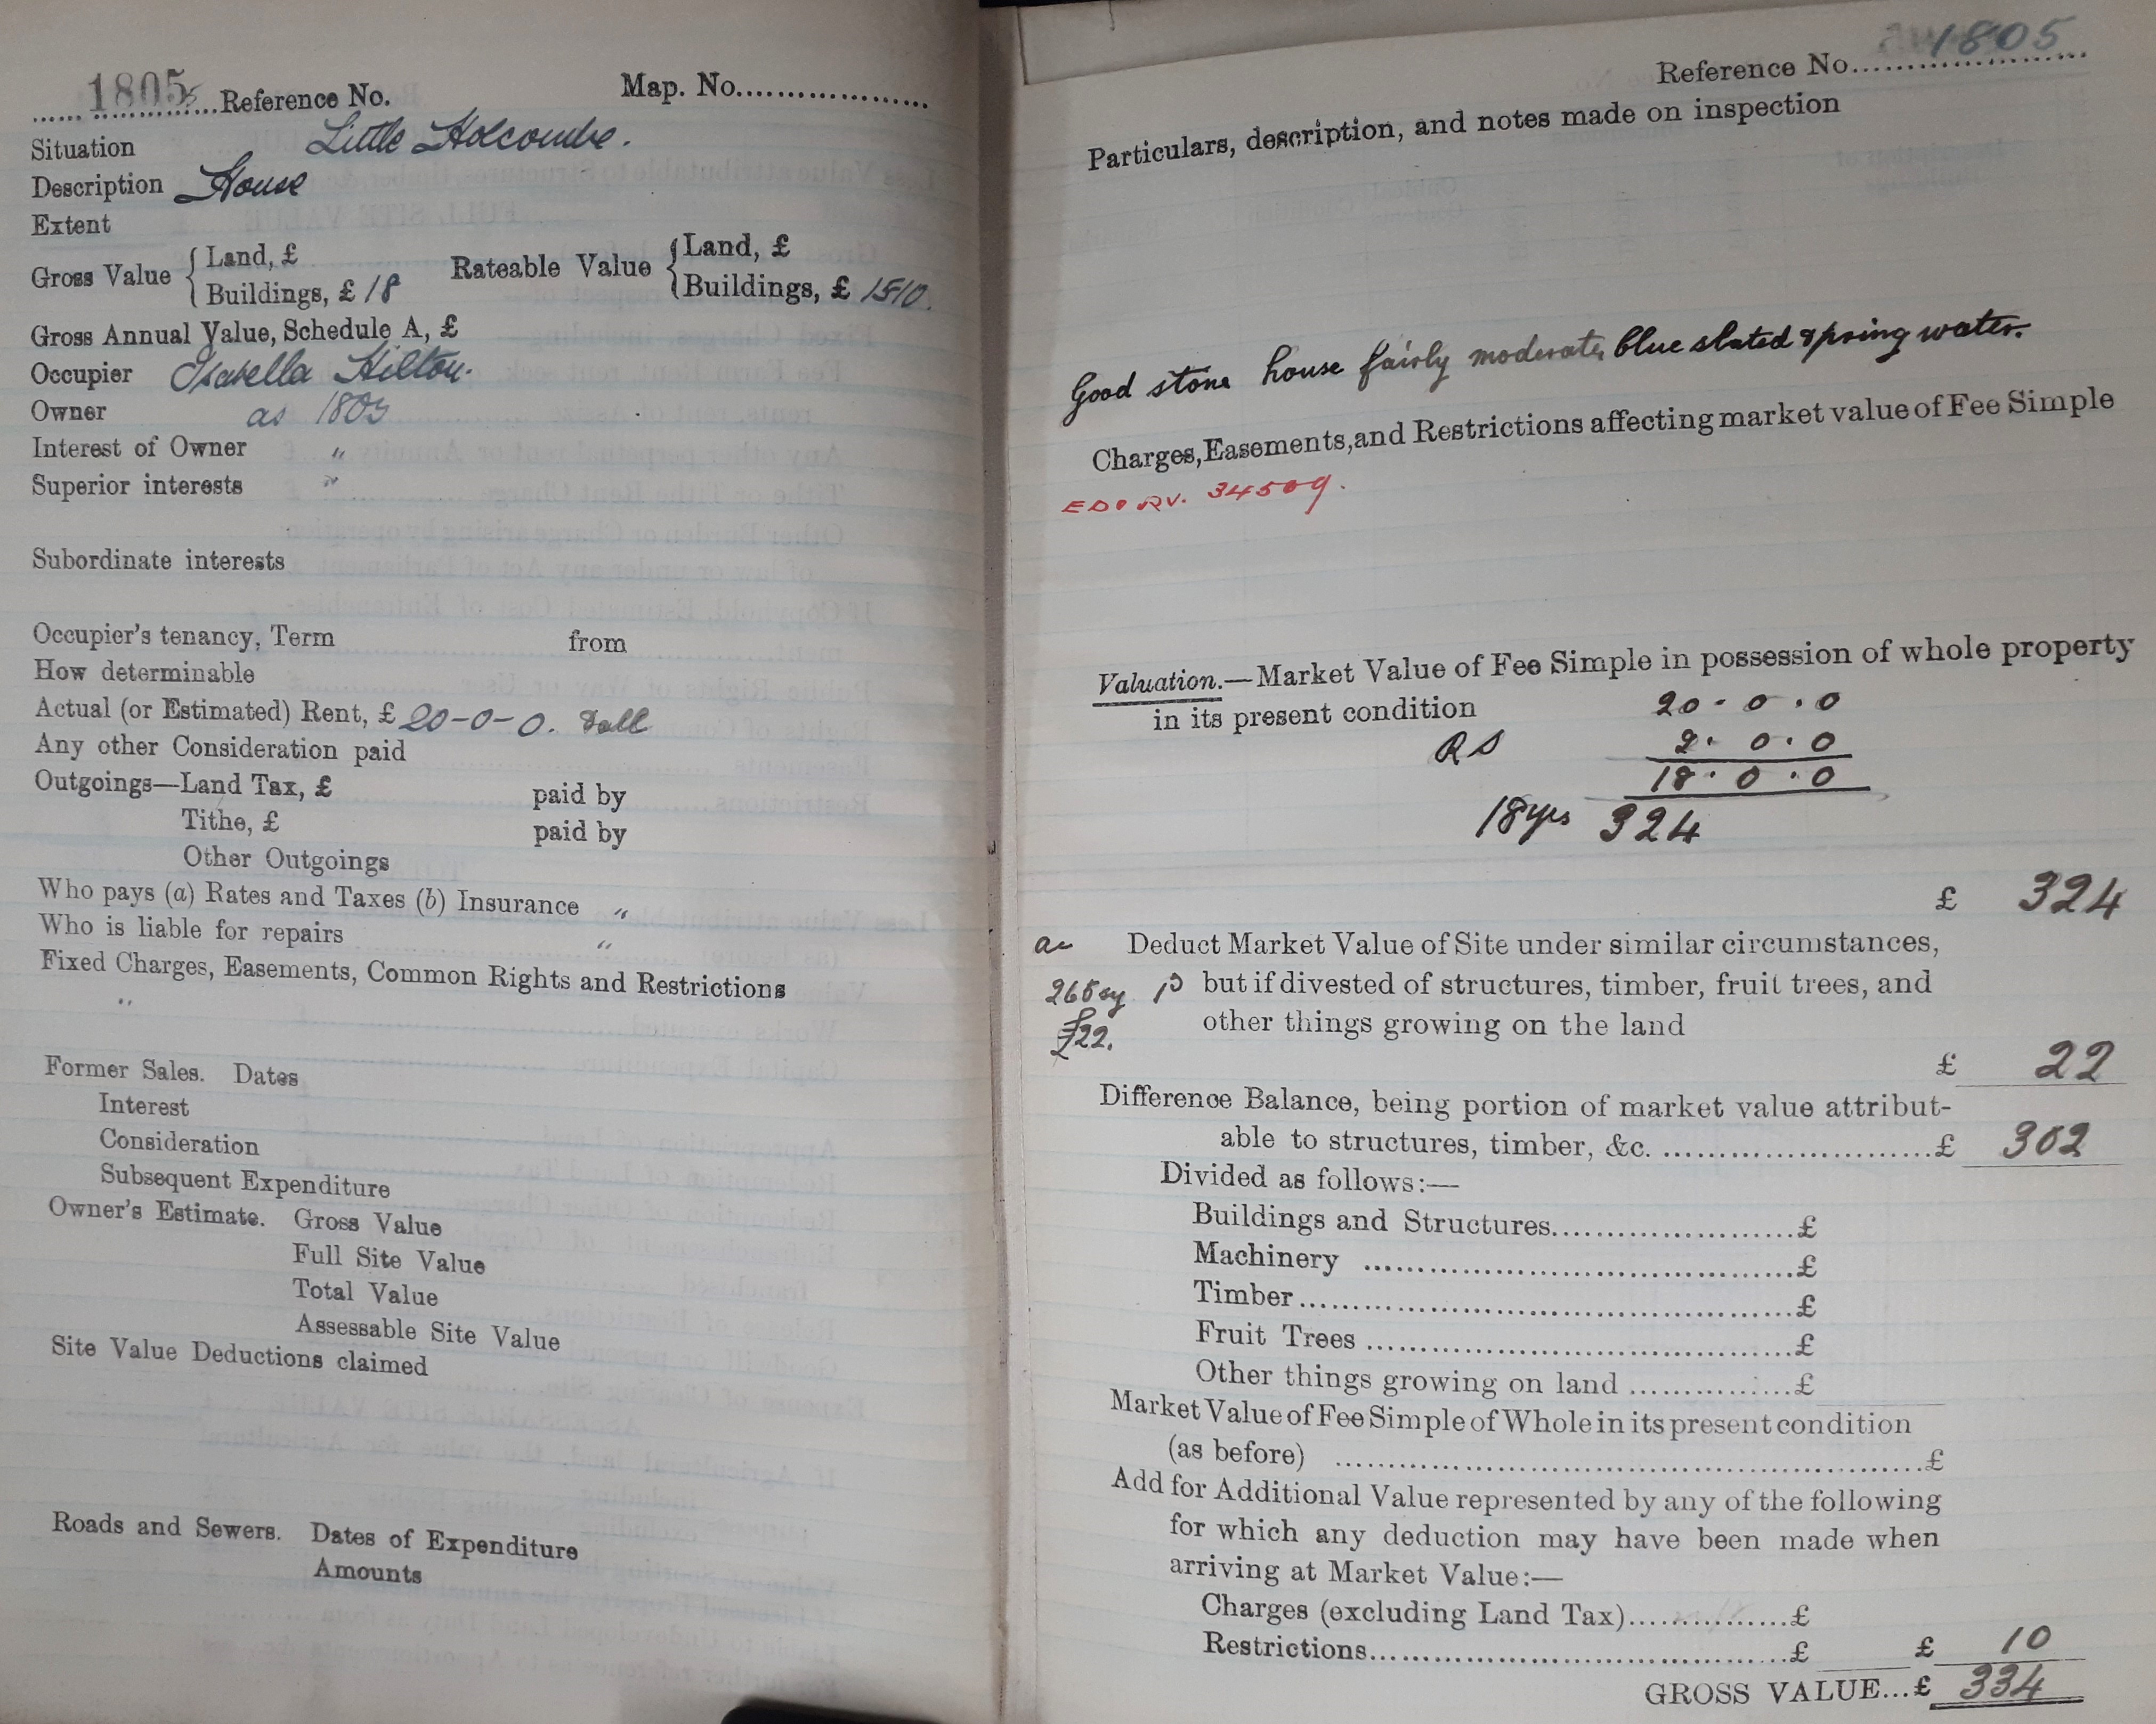 1805 Reference No. Map. No.
Situation Little Holcombe.
Description House
Extent
Gross Value { Land, £
Buildings, £ 18
Rateable Value { Land, £
Buildings, £ 15/10.
Gross Annual Value, Schedule A, £
Occupier Isabella Hilton.
Owner as 1803
Interest of Owner "
Superior interests "
Subordinate interests
Occupier's tenancy, Term from
How determinable
Actual (or Estimated) Rent, £ 20-0-0.
Any other Consideration paid
Outgoings—Land Tax, £ paid by
Tithe, £ paid by
Other Outgoings
Who pays (a) Rates and Taxes (b) Insurance "
Who is liable for repairs "
Fixed Charges, Easements, Common Rights and Restrictions
"
Former Sales. Dates
Interest
Consideration
Subsequent Expenditure
Owner's Estimate. Gross Value
Full Site Value
Total Value
Assessable Site Value
Site Value Deductions claimed
Roads and Sewers. Dates of Expenditure
Amounts
Reference No. 1805
Particulars, description, and notes made on inspection
Good stone house fairly moderate, blue slated spring water.
Charges, Easements, and Restrictions affecting market value of Fee Simple
34509.
Valuation.—Market Value of Fee Simple in possession of whole property
in its present condition 20 - 0 . 0
2 . 0 . 0
18 . 0 . 0
18 yrs 324
£ 324
Deduct Market Value of Site under similar circumstances,
265 sy but if divested of structures, timber, fruit trees, and
£22. other things growing on the land
£ 22
Difference Balance, being portion of market value attribut-
able to structures, timber, &c. £ 302
Divided as follows:—
Buildings and Structures £
Machinery £
Timber £
Fruit Trees £
Other things growing on land £
Market Value of Fee Simple of Whole in its present condition
(as before) £
Add for Additional Value represented by any of the following
for which any deduction may have been made when
arriving at Market Value:—
Charges (excluding Land Tax) £
Restrictions £ £ 10
GROSS VALUE...£ 334